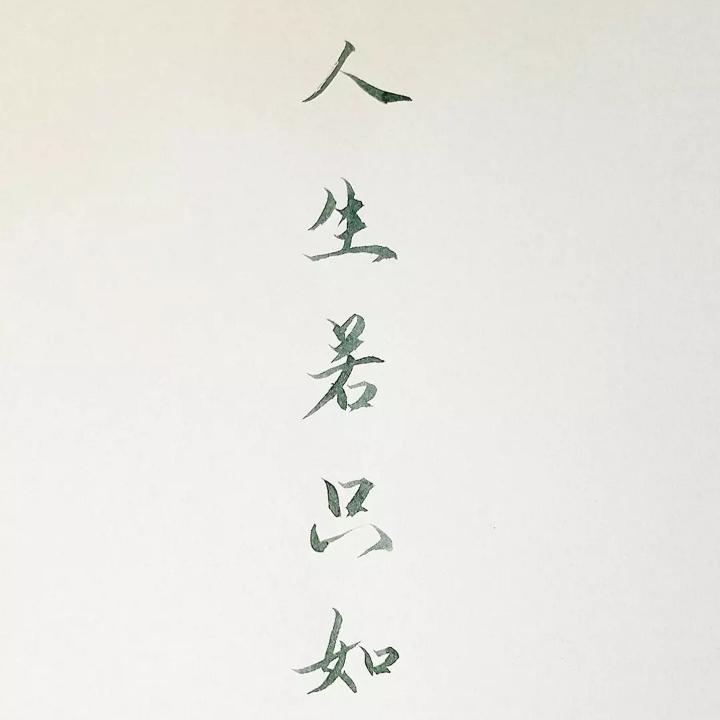 人生若只如